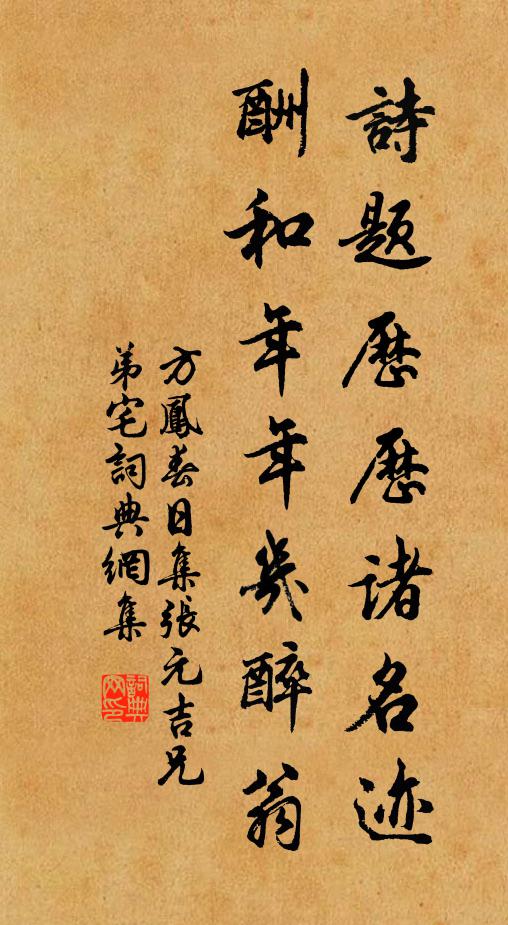 詩題歷歷諸名迹
酬和年年幾醉翁
方鳳春日集張元吉兄
弟宅詞典網集
詞典网印